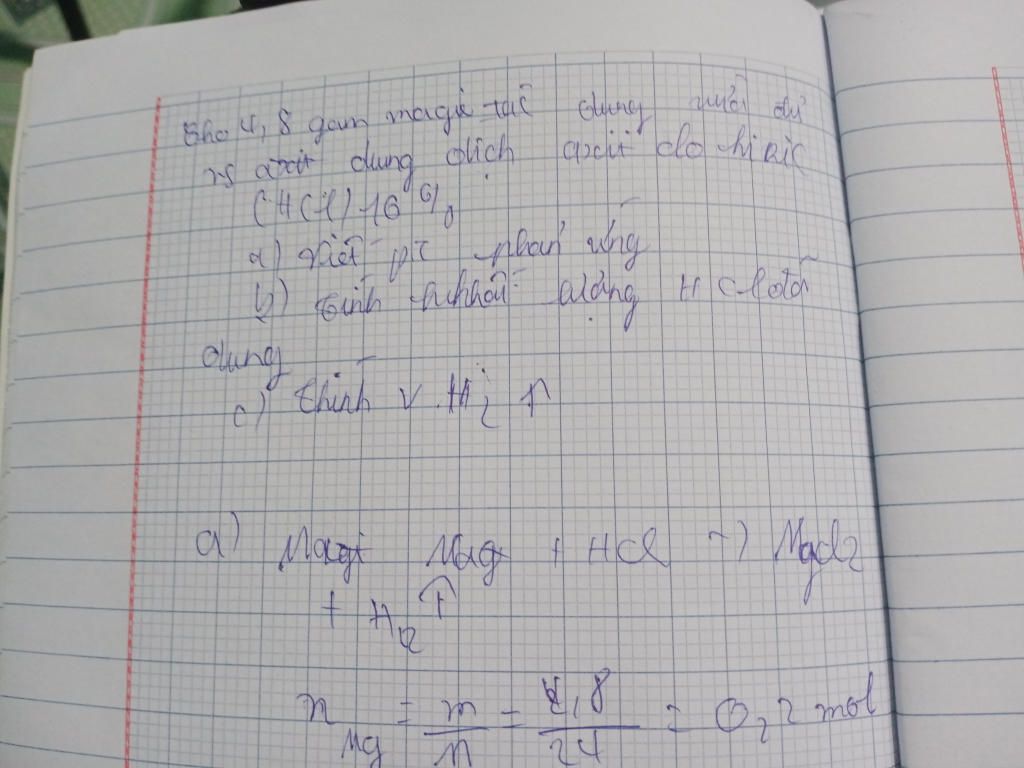 Cho 4,8 gam magiê tác dụng với đủ
dung dịch axit clo hiđric
(HCl) 16%
a) viết pt phản ứng
b) tính khối lượng HCl đã
dùng
c) thính V H2 ↑
a) Mag + HCl -> MgCl2
+ H2 ↑
n Mg = m/M = 4,8/24 = 0,2 mol